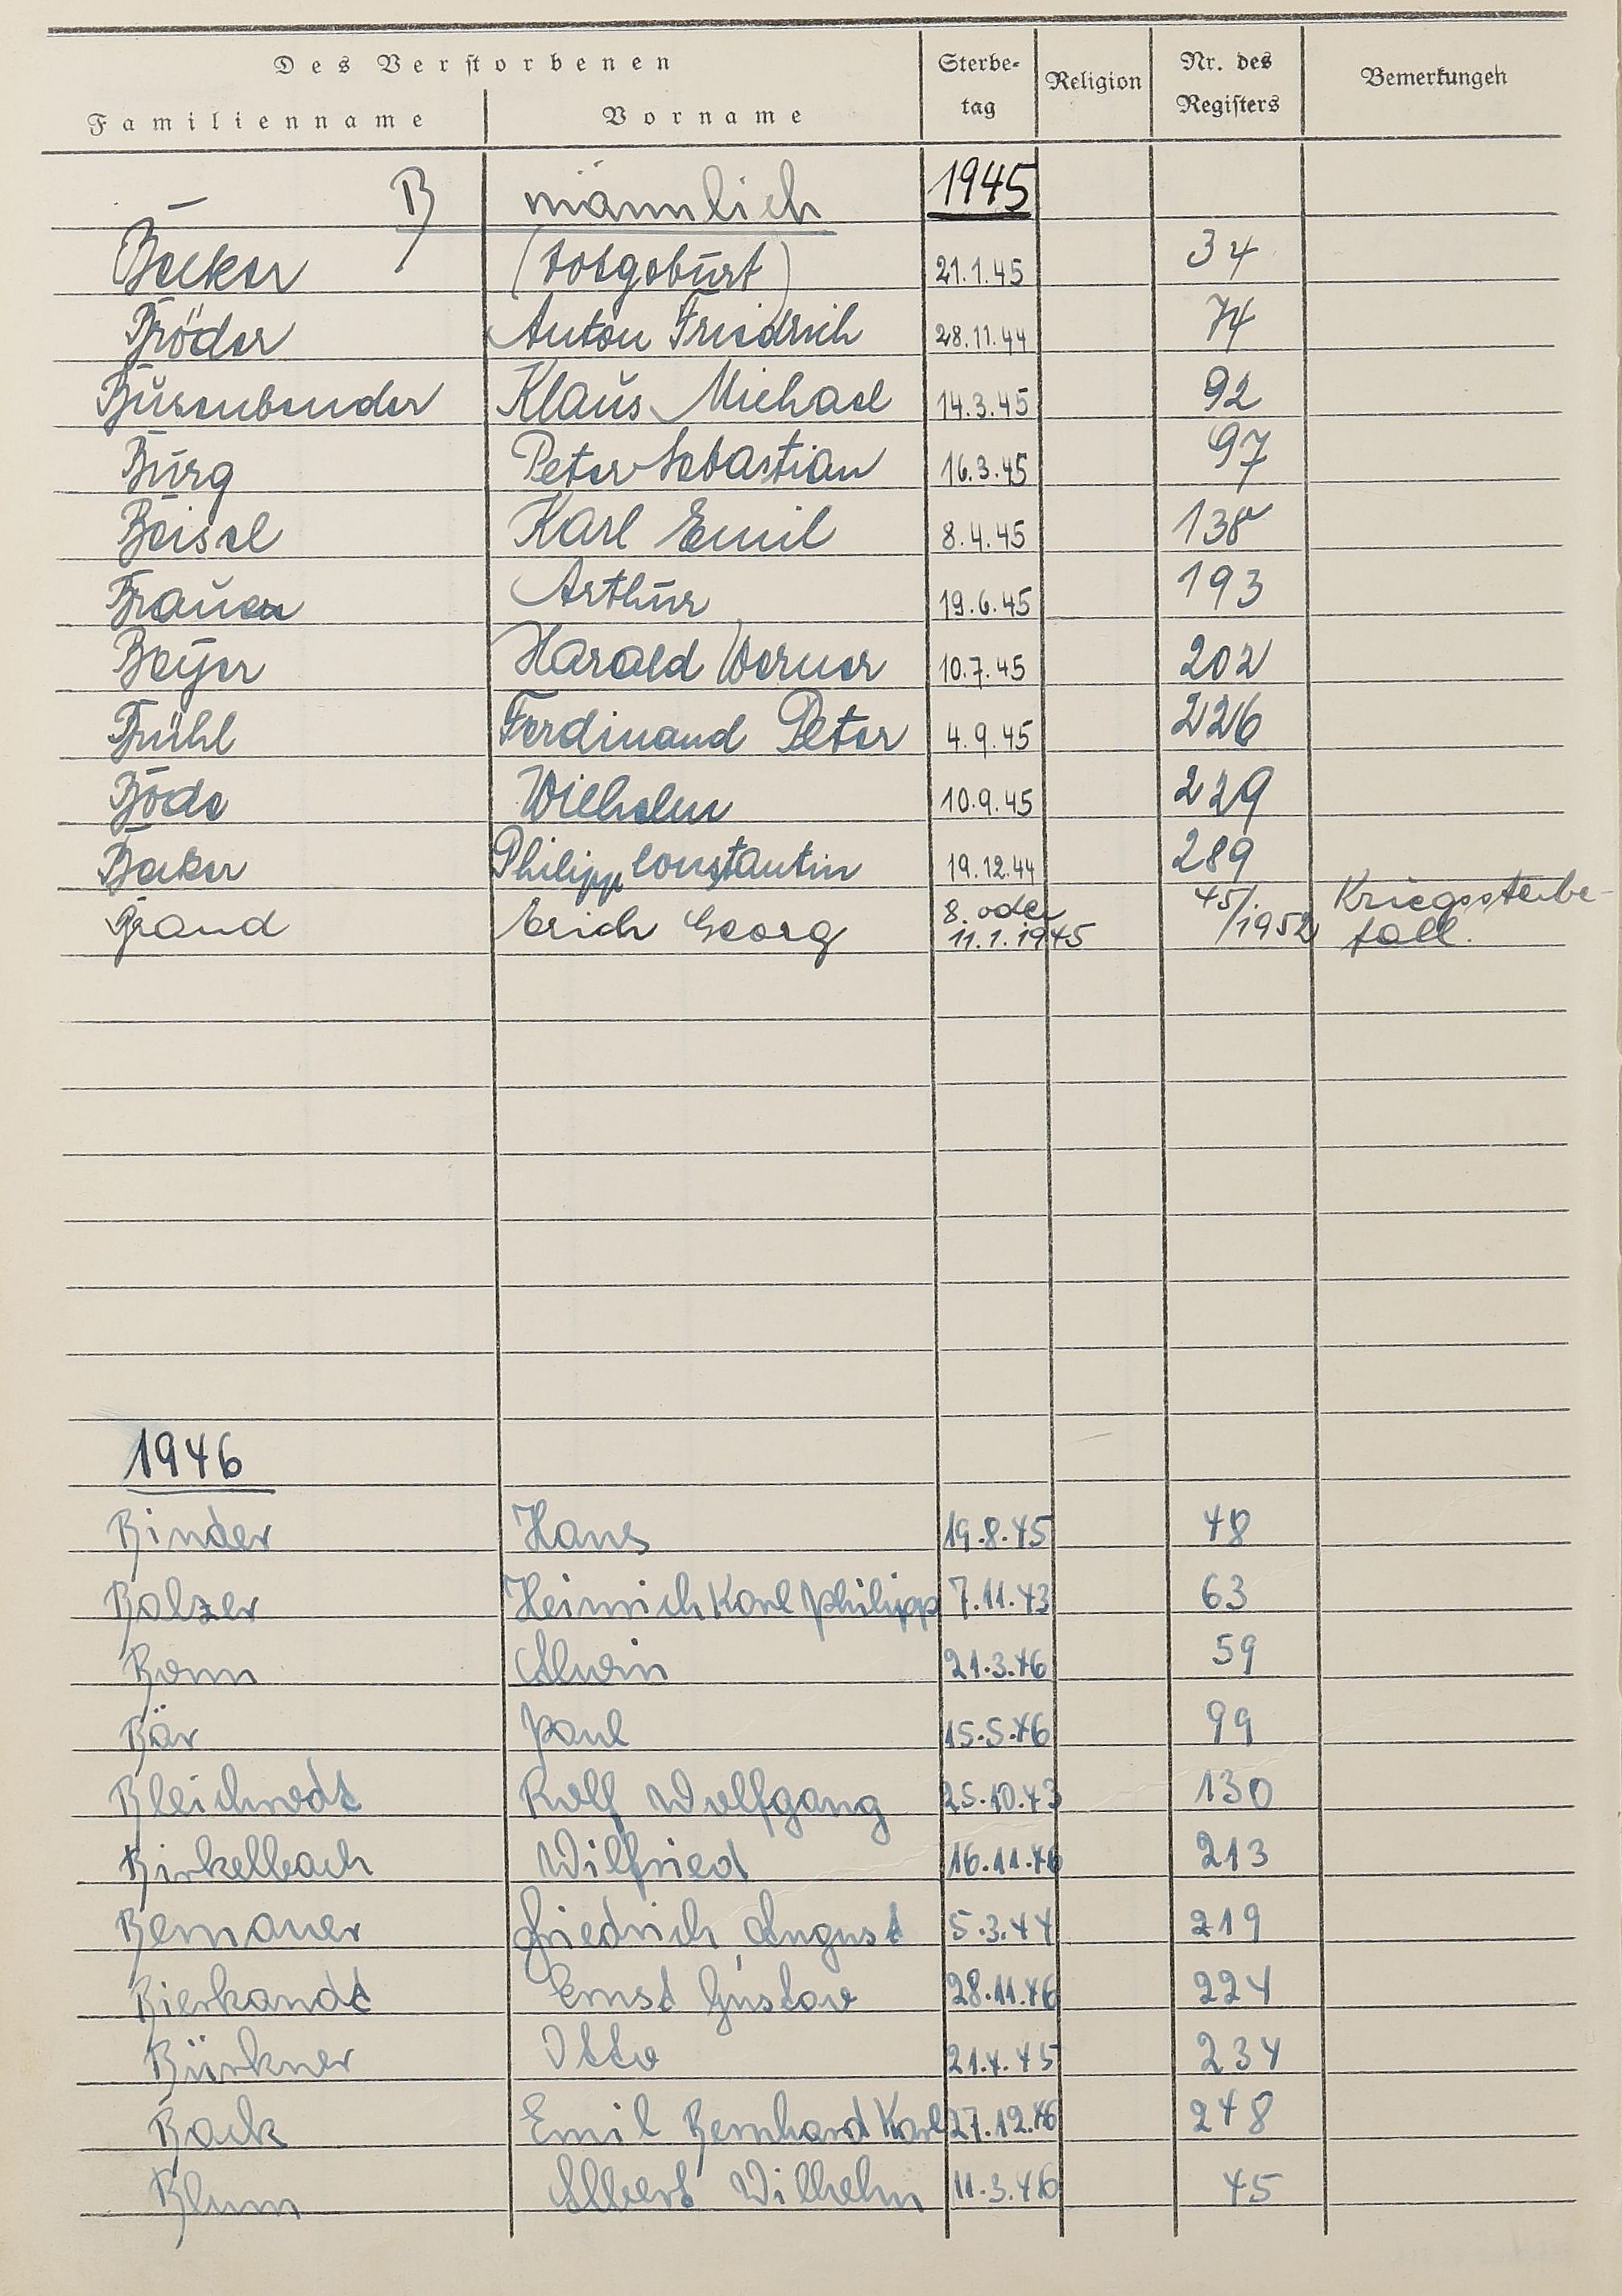 Des Verstorbenen Sterbe- Religion Nr. des Bemerkungen
Familienname Vorname tag Registers
B männlich 1945
Becker (Totgeburt) 21.1.45 34
Bröder Anton Friedrich 28.11.44 74
Busenbender Klaus Michael 14.3.45 92
Burg Peter Sebastian 16.3.45 97
Beisel Karl Emil 8.4.45 138
Brauer Arthur 19.6.45 193
Beyer Harald Werner 10.7.45 202
Brühl Ferdinand Peter 4.9.45 226
Bode Wilhelm 10.9.45 229
Becker Philipp Constantin 19.12.44 289
Brand Erich Georg 8. oder 11.1.1945 45/1952 Kriegssterbe-
fall.
1946
Binder Hans 19.8.45 48
Balzer Heinrich Karl Philipp 7.11.43 63
Bonn Alwin 21.3.46 59
Bär Paul 15.5.46 99
Bleichrodt Rolf Wolfgang 25.10.43 130
Birkelbach Wilfried 16.11.46 213
Bernauer Friedrich August 5.3.44 219
Bierkandt Ernst Gustav 28.11.46 224
Bürkner Otto 21.4.45 234
Back Emil Bernhard Karl 27.12.46 248
Blum Albert Wilhelm 11.3.46 45